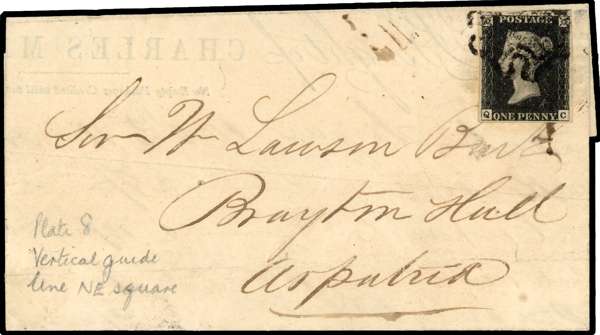 POSTAGE
Q ONE PENNY C
CHARLES M
Sir Wm Lawson Bart
Brayton Hall
Aspatria
Plate 8
Vertical guide
line NE square